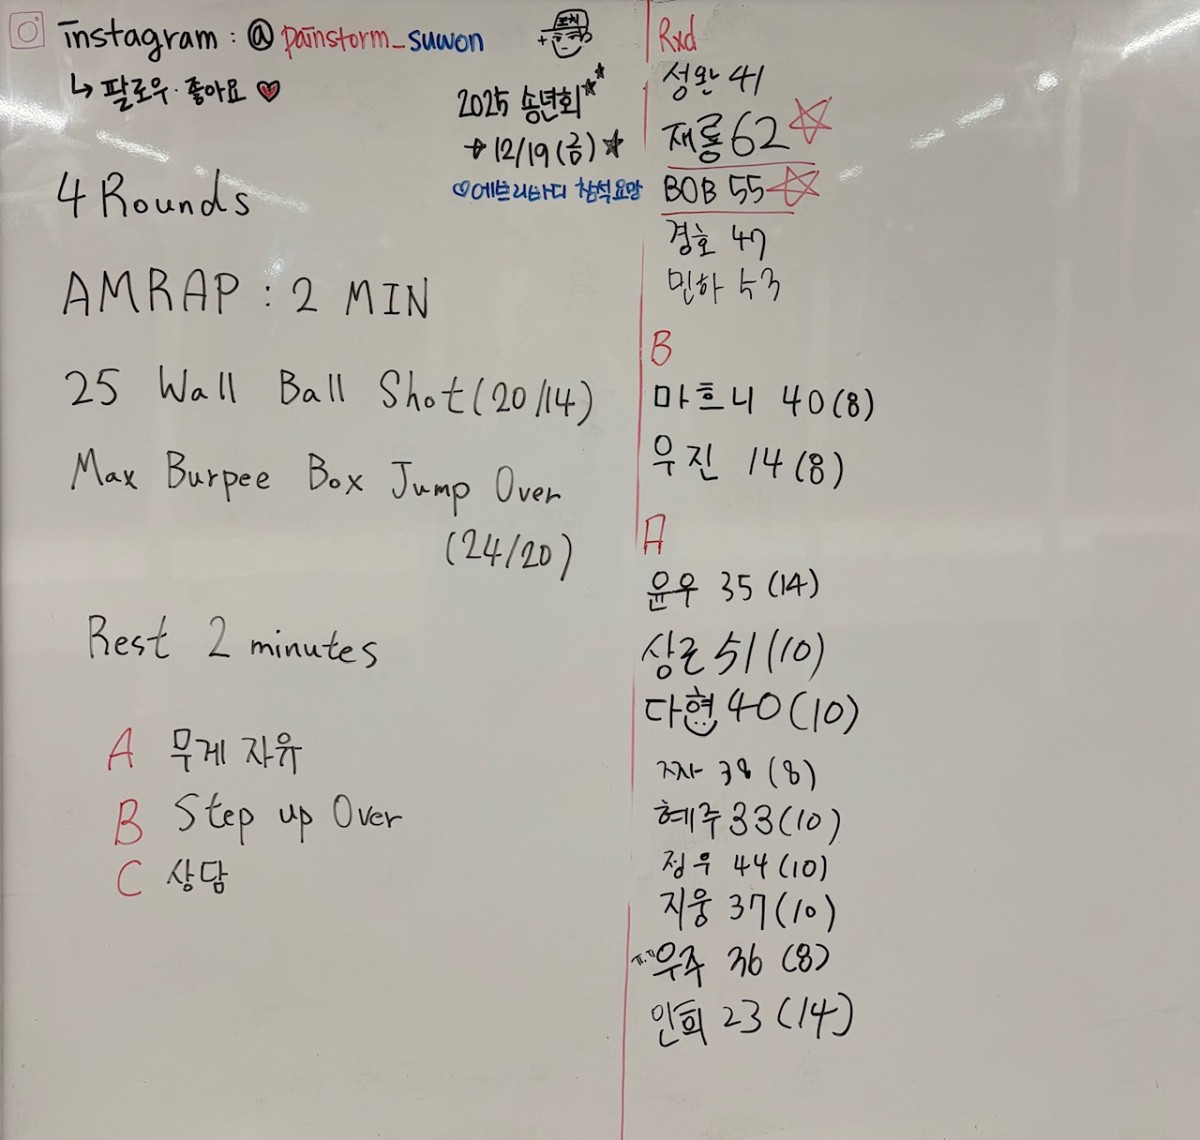 instagram : @ painstorm_suwon
↳ 팔로우·좋아요 ♥
2025 송년회
→ 12/19 (금)
♡에브리바디 참석요망
4 Rounds
AMRAP : 2 MIN
25 Wall Ball Shot (20/14)
Max Burpee Box Jump Over
(24/20)
Rest 2 minutes
A 무게 자유
B Step up Over
C 상담
Rxd
성완 41
재룡 62
BOB 55
경호 47
민하 53
B
마흐니 40 (8)
우진 14 (8)
A
윤우 35 (14)
상근 51 (10)
다현 40 (10)
38 (8)
혜주 33 (10)
정우 44 (10)
지웅 37 (10)
우주 36 (8)
인희 23 (14)